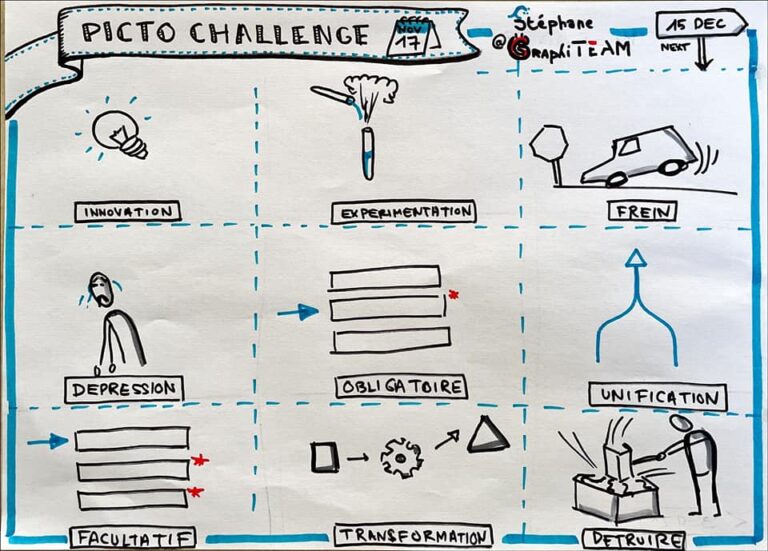 PICTO CHALLENGE
NOV
17
Stéphane
@GRaphiTEAM
15 DEC
NEXT
INNOVATION
EXPERIMENTATION
FREIN
DEPRESSION
*
OBLIGATOIRE
UNIFICATION
*
*
FACULTATIF
TRANSFORMATION
DETRUIRE